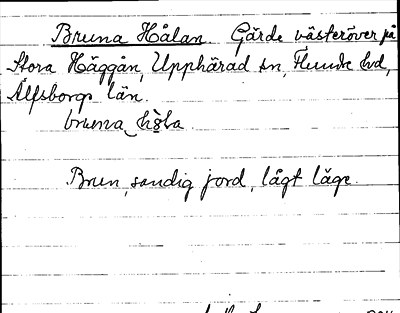 Bruna Hålan. Gärde västeröver på
Stora Häggån, Upphärad sn, Flundre hd,
Älfsborgs län.
bruna hòla

Brun, sandig jord, lågt läge.